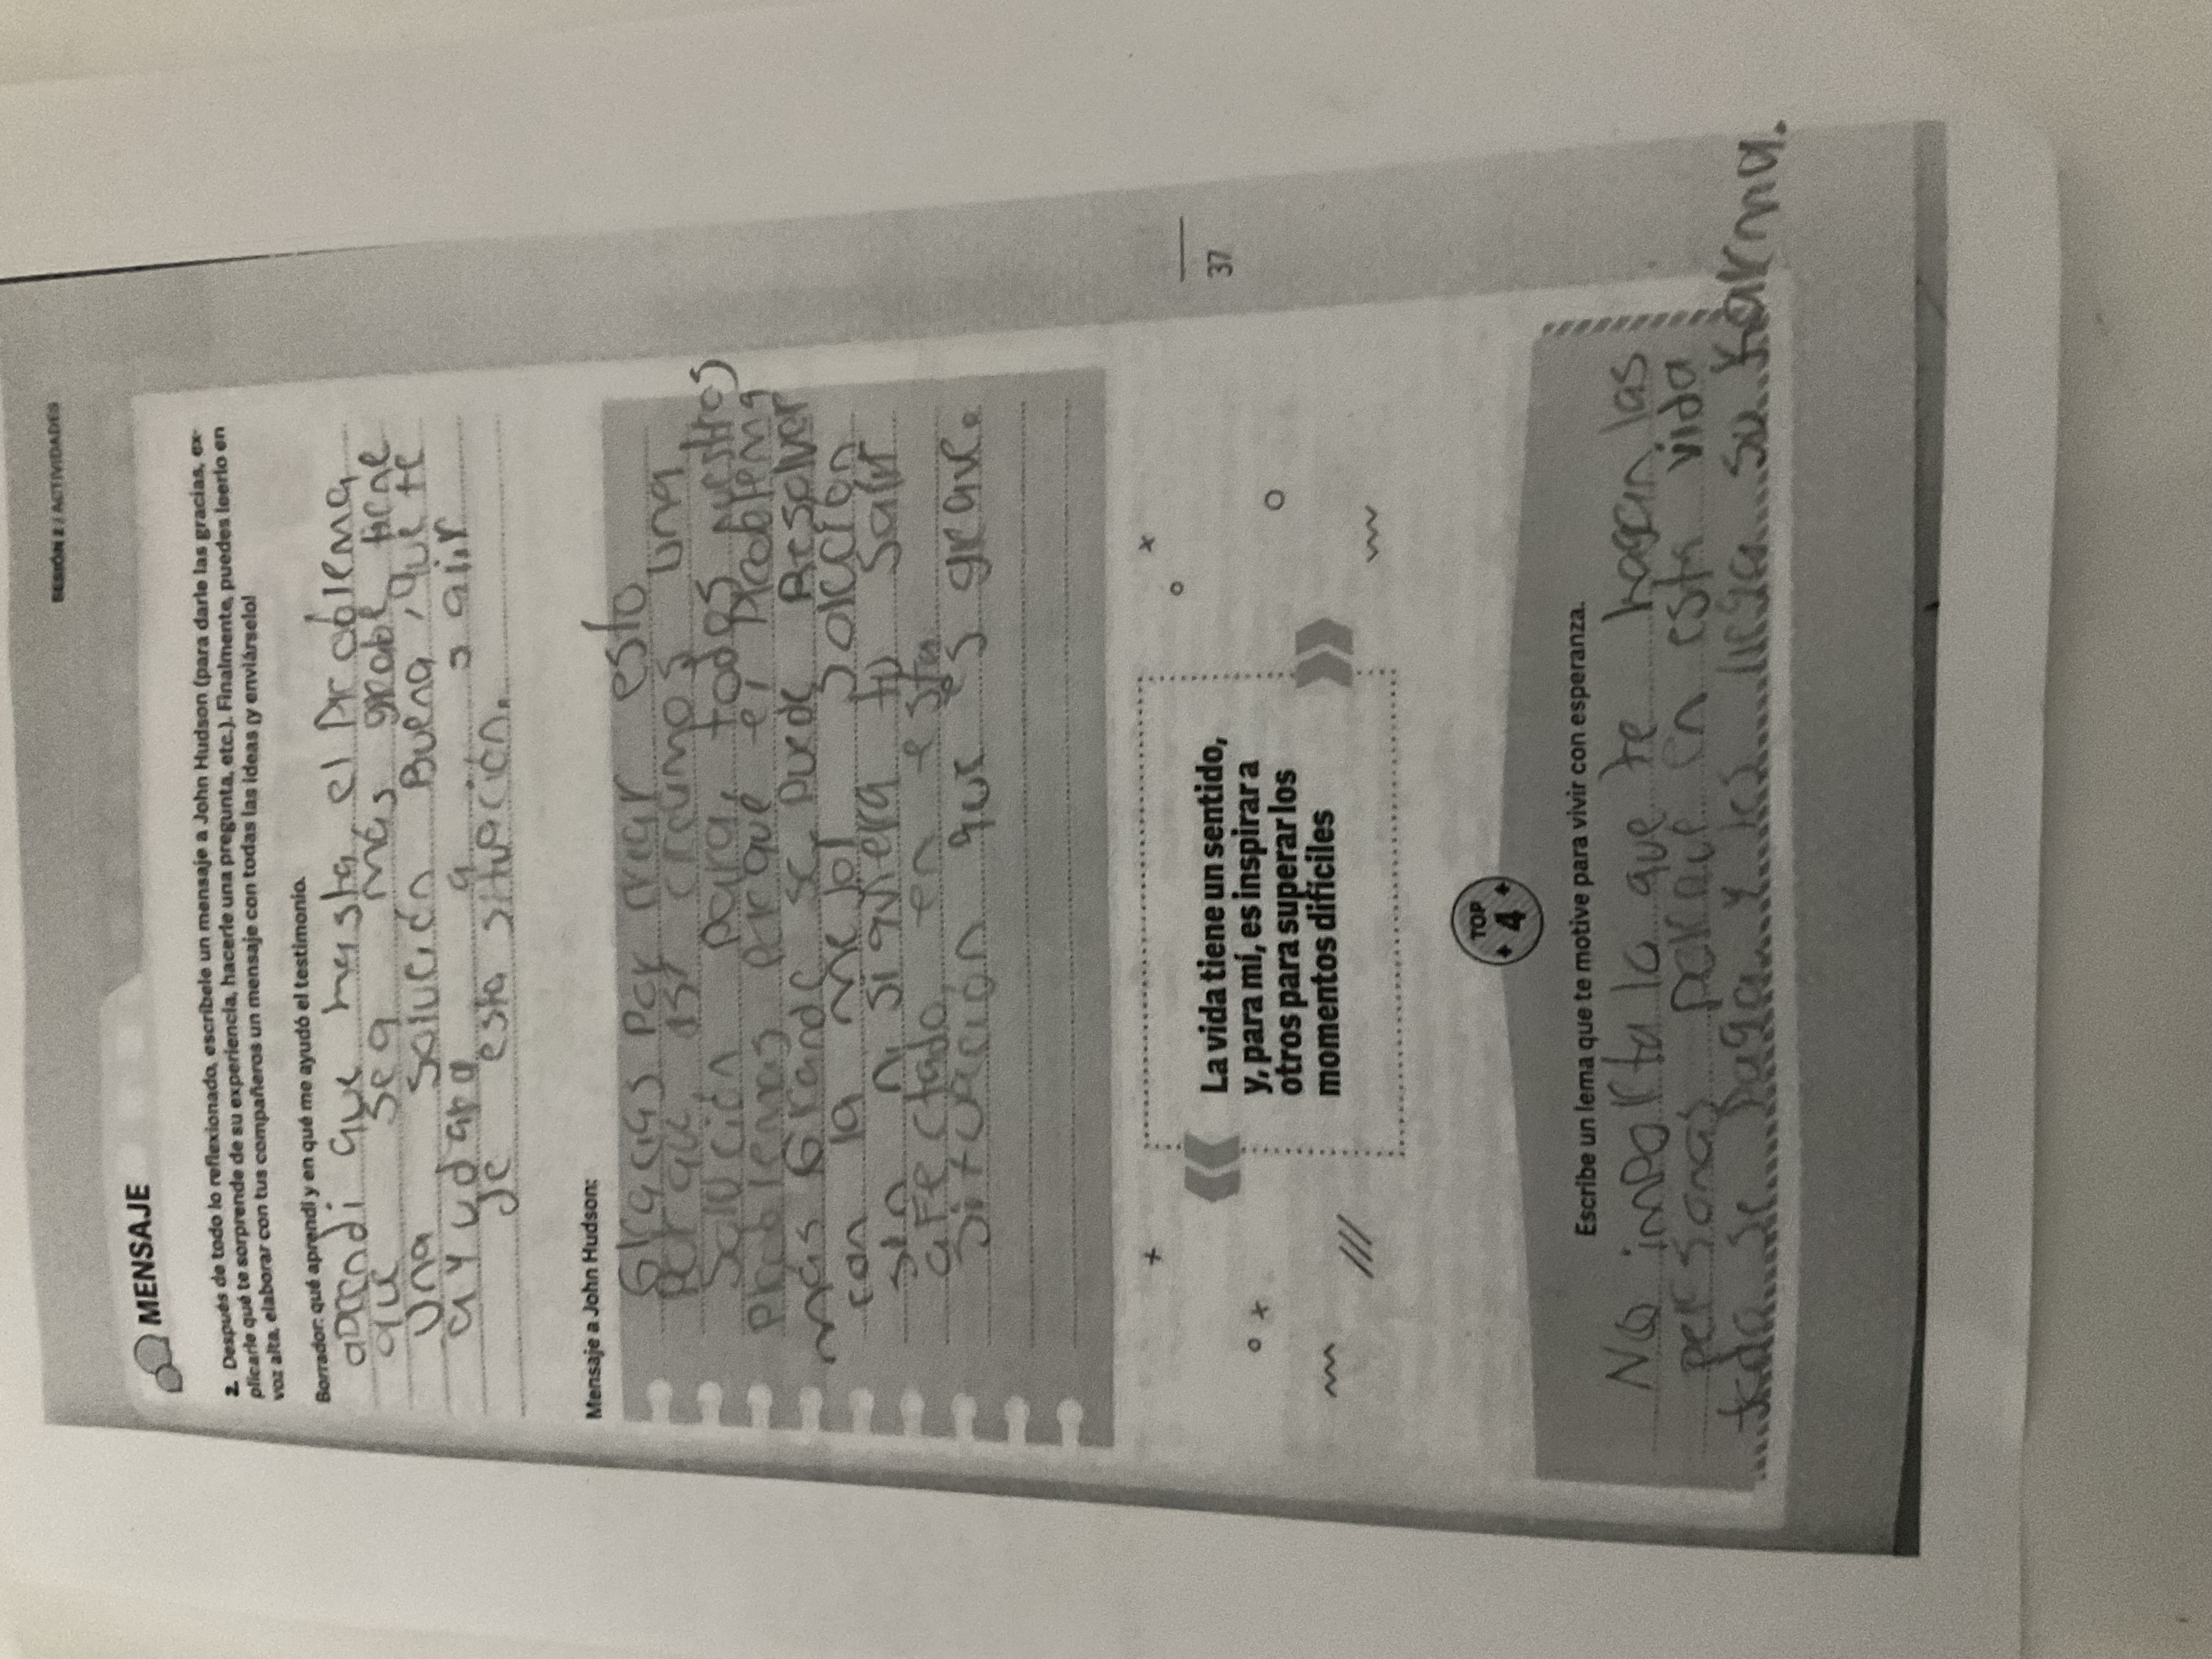 SESIÓN 2 / ACTIVIDADES
MENSAJE
2. Después de todo lo reflexionado, escríbele un mensaje a John Hudson (para darle las gracias, ex-
plicarle qué te sorprende de su experiencia, hacerle una pregunta, etc.). Finalmente, puedes leerlo en
voz alta, elaborar con tus compañeros un mensaje con todas las ideas ¡y enviárselo!
Borrador: qué aprendí y en qué me ayudó el testimonio.
aprendi que hasta el problema
que sea más grande tiene
una solución Buena, que te
ayudara a salir
de esta situación.
Mensaje a John Hudson:
Gracias por criar esto
porque asi creamos una
Solución para, todos nuestros
problemas porque el problema
más Grande se puede Resolver
con la mejol solucion
sin ni siquiera tu salir
afectado, en esta
situacion que es grave.
La vida tiene un sentido,
y, para mí, es inspirar a
otros para superar los
momentos difíciles
37
TOP
4
Escribe un lema que te motive para vivir con esperanza.
No importa lo que te hagan las
personas porque en esta vida
todo se paga y les llega su karma.